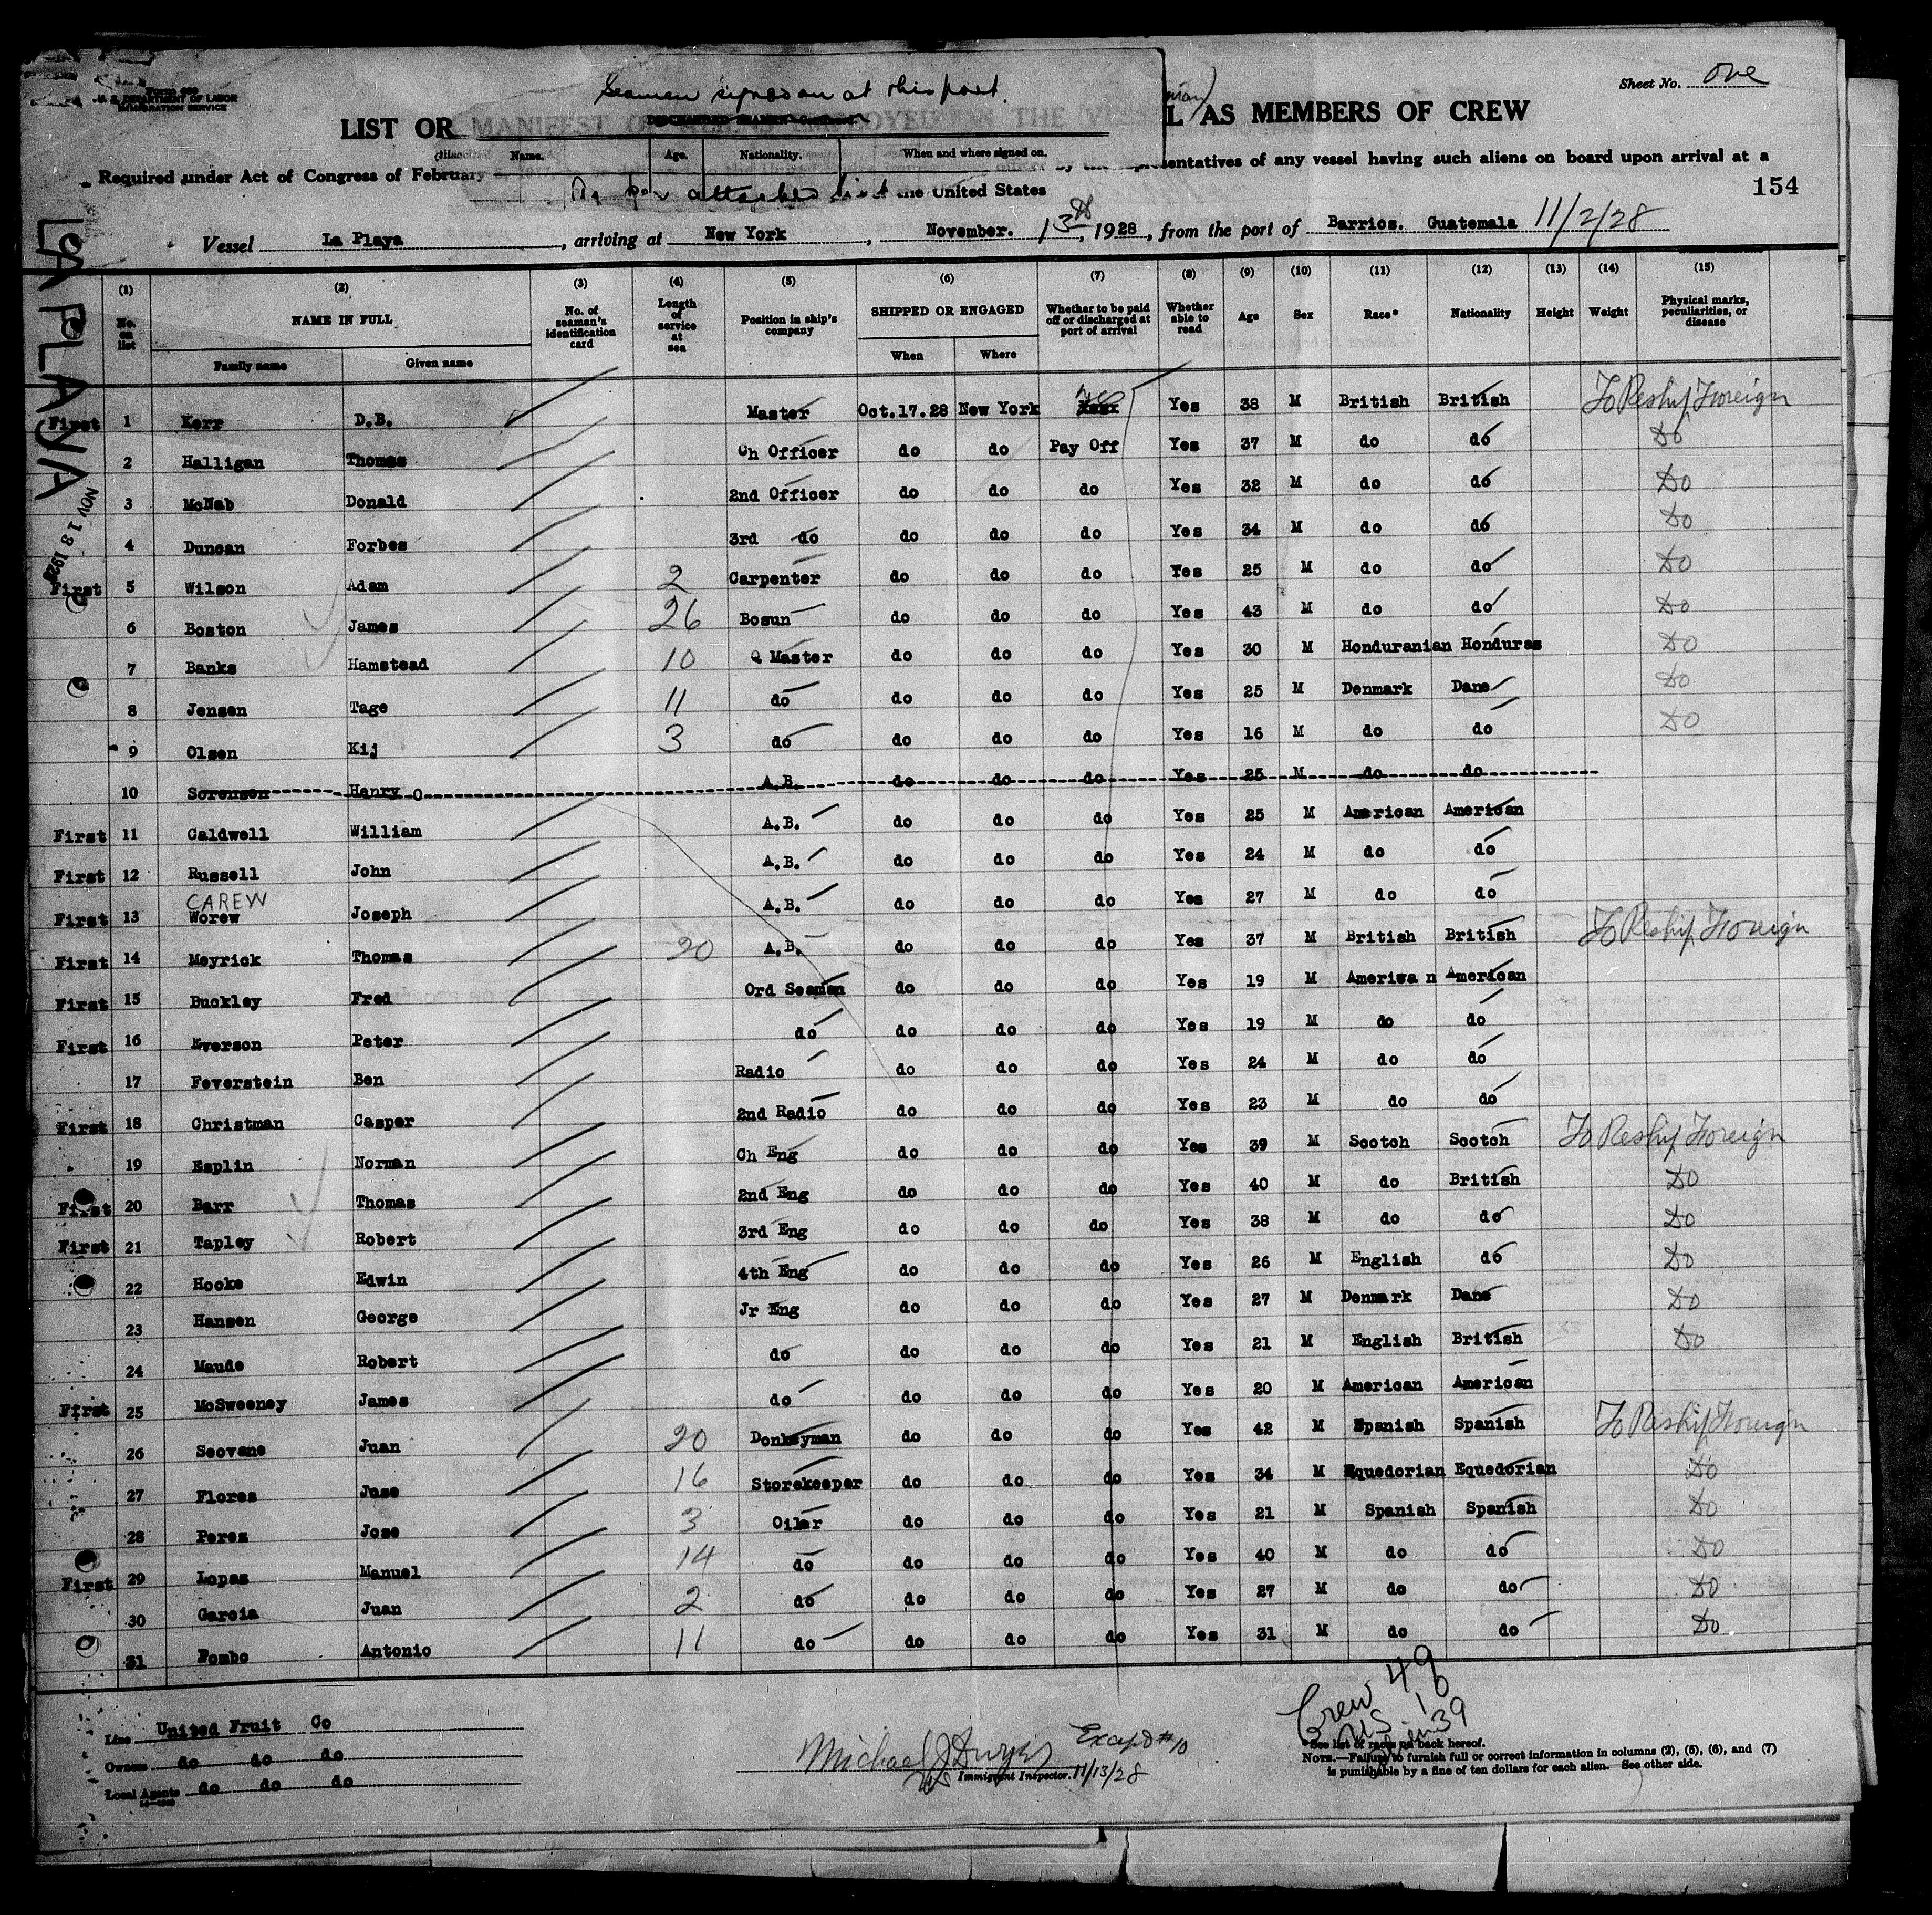 Form 680
U. S. DEPARTMENT OF LABOR
IMMIGRATION SERVICE
Seamen signed on at this port.
Sheet No. One
LIST OR MANIFEST OF ALIENS EMPLOYED ON THE VESSEL AS MEMBERS OF CREW
Name. Age. Nationality. When and where signed on.
Required under Act of Congress of February by the representatives of any vessel having such aliens on board upon arrival at a
As per attached list the United States
154
Vessel La Playa, arriving at New York, November. 13th, 1928, from the port of Barrios. Guatemala 11/2/28
LA PLAYA
NOV 13 1928
(1) (2) (3) (4) (5) (6) (7) (8) (9) (10) (11) (12) (13) (14) (15)
No. on list NAME IN FULL No. of seaman's identification card Length of service at sea Position in ship's company SHIPPED OR ENGAGED Whether to be paid off or discharged at port of arrival Whether able to read Age Sex Race* Nationality Height Weight Physical marks, peculiarities, or disease
Family name Given name When Where
First 1 Kerr D.B. Master Oct.17.28 New York Yes Yes 38 M British British To Reship Foreign
2 Halligan Thomas Ch Officer do do Pay Off Yes 37 M do do Do
3 McNab Donald 2nd Officer do do do Yes 32 M do do Do
4 Duncan Forbes 3rd do do do do Yes 34 M do do Do
First 5 Wilson Adam 2 Carpenter do do do Yes 25 M do do Do
6 Boston James 26 Bosun do do do Yes 43 M do do Do
7 Banks Hamstead 10 Q Master do do do Yes 30 M Honduranian Honduras Do
8 Jensen Tage 11 do do do do Yes 25 M Denmark Dane Do
9 Olsen Kij 3 do do do do Yes 16 M do do Do
10 Sorensen Henry O A.B. do do do Yes 25 M do do
First 11 Caldwell William A.B. do do do Yes 25 M American American
First 12 Russell John A.B. do do do Yes 24 M do do
CAREW
First 13 Worew Joseph A.B. do do do Yes 27 M do do
First 14 Meyrick Thomas 20 A.B. do do do Yes 37 M British British To Reship Foreign
First 15 Buckley Fred Ord Seaman do do do Yes 19 M America n American
First 16 Everson Peter do do do do Yes 19 M do do
17 Feverstein Ben Radio do do do Yes 24 M do do
First 18 Christman Casper 2nd Radio do do do Yes 23 M do do
19 Esplin Norman Ch Eng do do do Yes 39 M Scotch Scotch To Reship Foreign
First 20 Barr Thomas 2nd Eng do do do Yes 40 M do British Do
First 21 Tapley Robert 3rd Eng do do do Yes 38 M do do Do
22 Hooke Edwin 4th Eng do do do Yes 26 M English do Do
23 Hansen George Jr Eng do do do Yes 27 M Denmark Dane Do
24 Maude Robert do do do do Yes 21 M English British Do
First 25 McSweeney James do do do do Yes 20 M American American
26 Seovane Juan 20 Donkeyman do do do Yes 42 M Spanish Spanish To Reship Foreign
27 Flores Juse 16 Storekeeper do do do Yes 34 M Equedorian Equedorian Do
28 Peres Jose 3 Oiler do do do Yes 21 M Spanish Spanish Do
First 29 Lopas Manuel 14 do do do do Yes 40 M do do Do
30 Garcia Juan 2 do do do do Yes 27 M do do Do
31 Pombo Antonio 11 do do do do Yes 31 M do do Do
Line United Fruit Co
Owners do do do
Local Agents do do do
Michael J Dwyer Except #10
US Immigrant Inspector. 11/13/28
Crew 49
US 10
Alien 39
*See list of races on back hereof.
NOTE.—Failure to furnish full or correct information in columns (2), (5), (6), and (7)
is punishable by a fine of ten dollars for each alien. See other side.